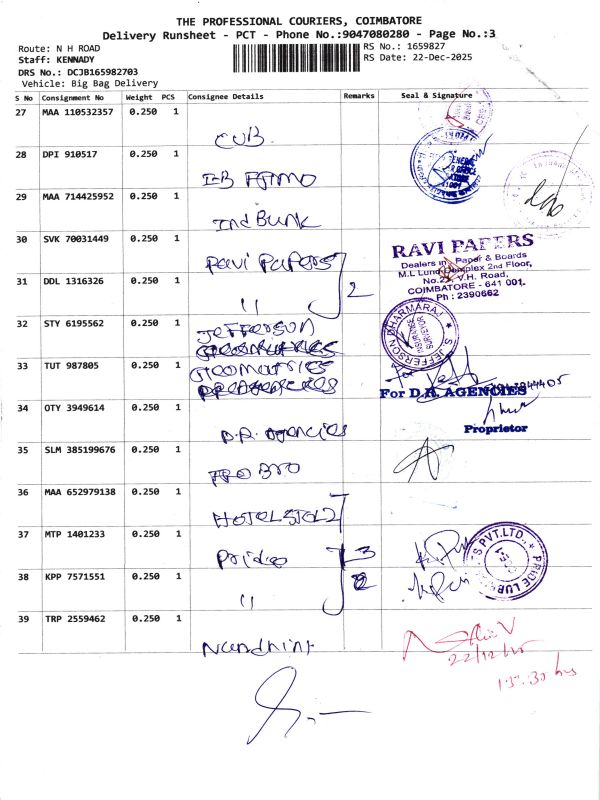 THE PROFESSIONAL COURIERS, COIMBATORE
Delivery Runsheet - PCT - Phone No.:9047080280 - Page No.:3
Route: N H ROAD
RS No.: 1659827
Staff: KENNADY
RS Date: 22-Dec-2025
DRS No.: DCJB165982703
Vehicle: Big Bag Delivery
S No Consignment No Weight PCS Consignee Details Remarks Seal & Signature
27 MAA 110532357 0.250 1
CUB
28 DPI 910517 0.250 1
29 MAA 714425952 0.250 1
Ind Bunk
30 SVK 70031449 0.250 1
Ravi Papers
RAVI PAPERS
Dealers in Paper & Boards
M.L Lund Complex 2nd Floor,
V.H. Road,
COIMBATORE - 641 001.
Ph : 2390662
31 DDL 1316326 0.250 1
" 2
32 STY 6195562 0.250 1
Jefferson
S. JEFFERSON DHARMARAJ
INSURANCE
SURVEYOR
33 TUT 987805 0.250 1
Geomatries
For D.R. AGENCIES
Proprietor
34 OTY 3949614 0.250 1
D.R. Agencies
35 SLM 385199676 0.250 1
36 MAA 652979138 0.250 1
37 MTP 1401233 0.250 1
Pride 3
PRIDE LUB S PVT.LTD.
38 KPP 7571551 0.250 1
"
39 TRP 2559462 0.250 1
Nandhini
22/12/25
15:30 hrs